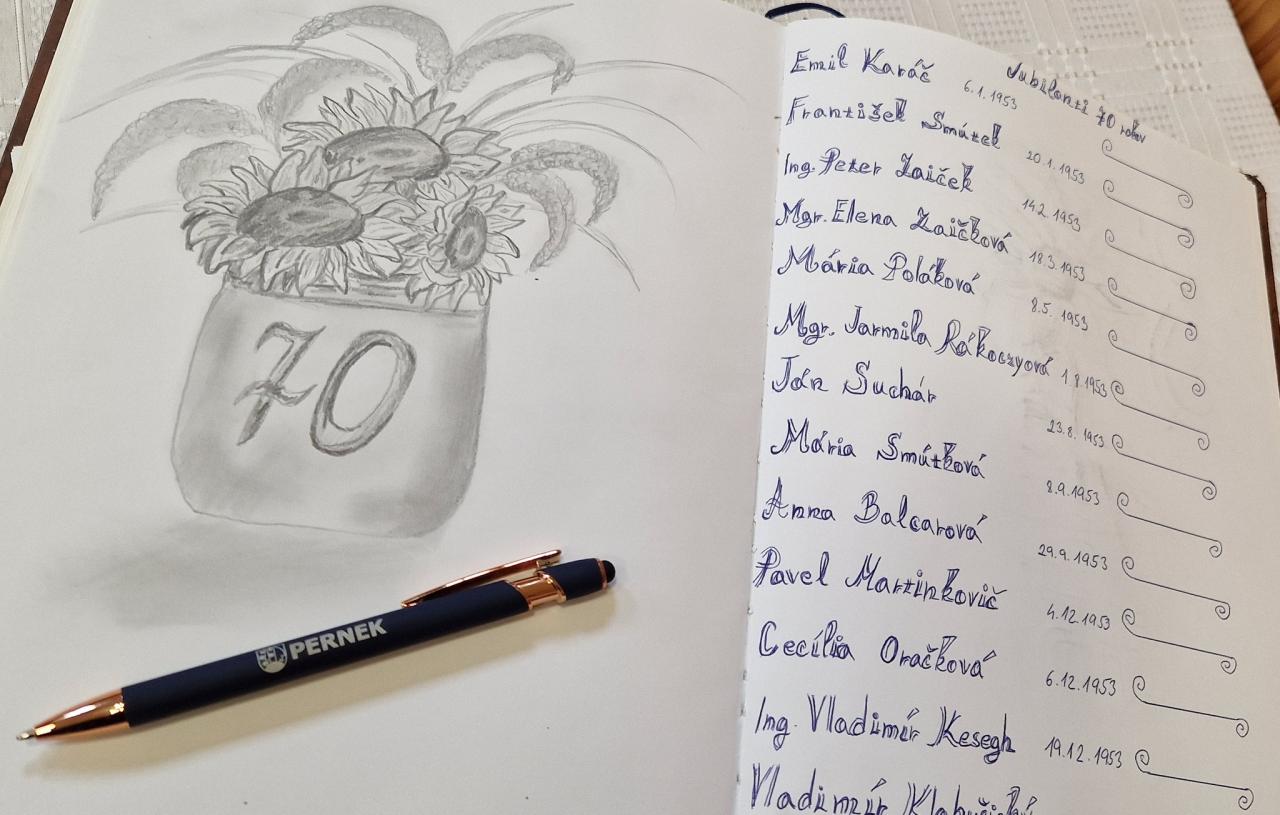 70
PERNEK
Jubilanti 70 rokov
Emil Karáč 6.1.1953
František Smútek 20.1.1953
Ing. Peter Zaiček 14.2.1953
Mgr. Elena Zaičková 18.3.1953
Mária Poláková 8.5.1953
Mgr. Jarmila Rákoczyová 1.8.1953
Ján Suchár 23.8.1953
Mária Smútková 8.9.1953
Anna Balcarová 29.9.1953
Pavel Martinkovič 4.12.1953
Cecília Oračková 6.12.1953
Ing. Vladimír Kesegh 19.12.1953
Vladimír